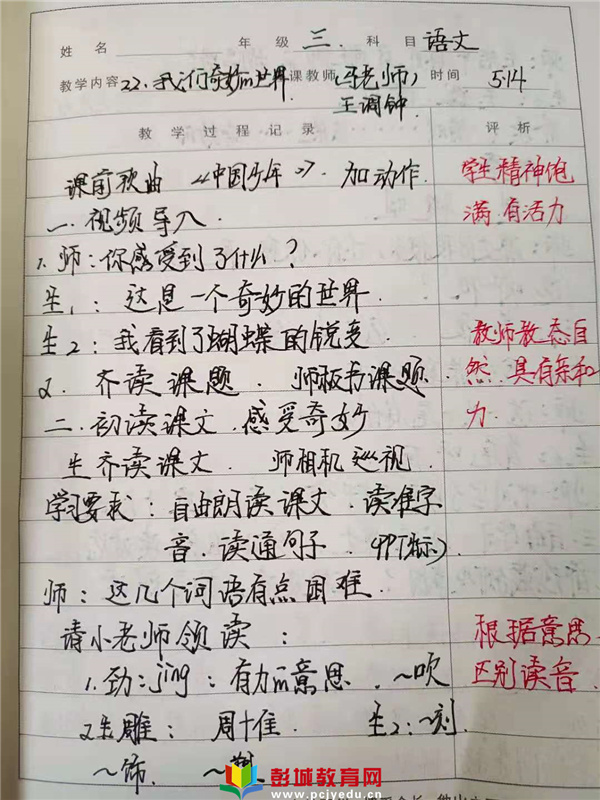 姓名 年级 三. 科目 语文
教学内容 22.我们奇妙的世界 课教师 (张老师) 时间 5.14
王调钟
教学过程记录 评析
课前歌曲 《中国少年》. 加动作. 学生精神饱
满 有活力
一. 视频导入.
1. 师:你感受到了什么?
生1: 这是一个奇妙的世界.
生2: 我看到了蝴蝶的锐变 教师教态自
2. 齐读课题. 师板书课题. 然. 具有亲和
二. 初读课文. 感受奇妙 力.
生齐读课文. 师相机巡视.
学习要求: 自由朗读课文. 读准字
音. 读通句子. (PPT标)
师: 这几个词语有点困难.
请小老师领读: 根据意思
1.劲: jìng: 有力的意思. ~吹 区别读音.
2.生雕: 周十隹. 生2: ~刻
~饰.
彭城教育网
www.pcjyedu.cn